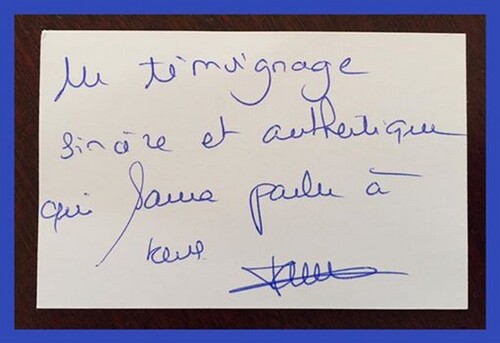 Un témoignage
sincère et authentique
qui saura parler à
tous